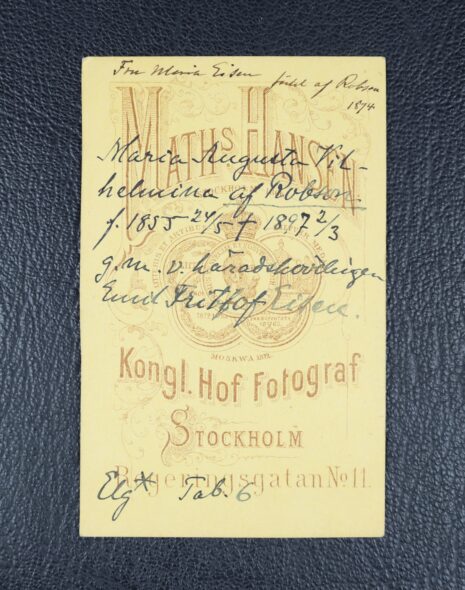 Fru Maria Eisen född af Robson
1874
MATHS HANSEN
STOCKHOLM
Maria Augusta Vil-
helmina af Robson.
f. 1855 24/5 † 1897 2/3
g. m. v. häradshövdingen
Emil Frithof Eisen.
MOSKWA 1872.
Kongl. Hof Fotograf
STOCKHOLM
Regeringsgatan No 11.
Elg* Tab. 6